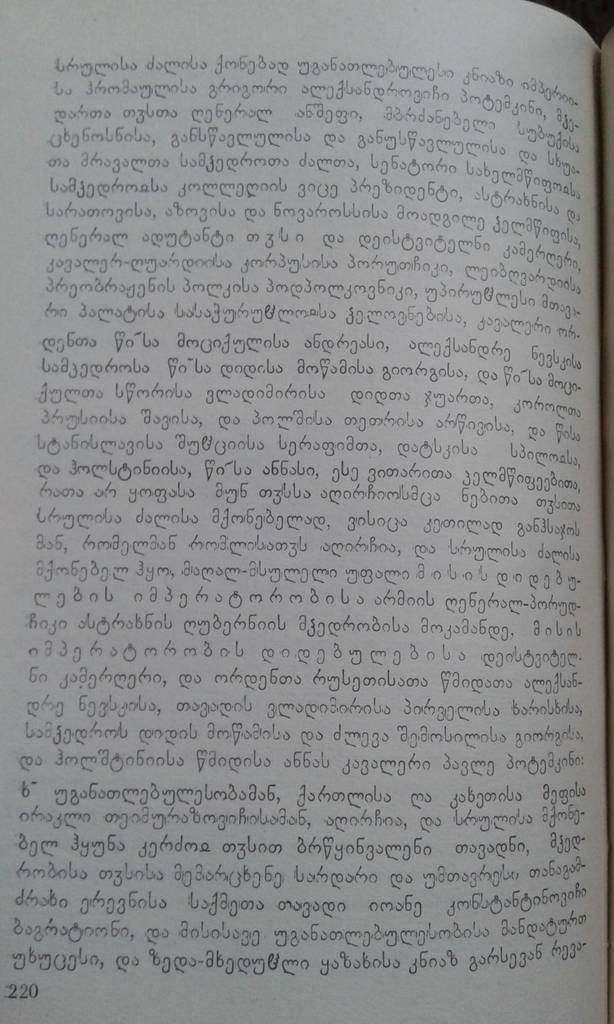 სრულისა ძალისა ქონებად უგანათლებულესი კნიაზი იმპერიი-
სა ჰრომაულისა გრიგორი ალექსანდროვიჩი პოტემკინი, მჴე-
დართა თჳსთა ღენერალ ანშეფი, მბრძანებელი სუბუქისა
ცხენოსნისა, განსწავლულისა და განუსწავლულისა და სხუა-
თა მრავალთა სამჴედროთა ძალთა, სენატორი სახელმწიფოჲსა
სამჴედროჲსა კოლლეღიის ვიცე პრეზიდენტი, ასტრახნისა და
სარათოვისა, აზოვისა და ნოვაროსსისა მოადგილე ჴელმწიფისა,
ღენერალ ადუტანტი თჳსი და დეისტვიტელნი კამერღერი,
კავალერ-ღუარდიისა კორპუსისა პორუთჩიკი, ლეიბღვარდიისა
პრეობრაჟენის პოლკისა პოდპოლკოვნიკი, უპირუჱლესი მთავა-
რი პალატისა სასაჭურუჱლოჲსა ჴელოვნებისა, კავალერი ორ-
დენთა წი˜სა მოციქულისა ანდრეასი, ალექსანდრე ნევსკისა
სამჴედროსა წი˜სა დიდისა მოწამისა გიორგისა, და წი˜სა მოცი-
ქულთა სწორისა ვლადიმირისა დიდთა ჯუართა, კოროლთა
პრუსიისა შავისა, და პოლშისა თეთრისა არწივისა, და წისა
სტანისლავისა შუჱციისა სერაფიმთა, დატსკისა სპილოჲსა,
და ჰოლსტინიისა, წი˜სა ანნასი, ესე ვითარითა ჴელმწიფეებითა,
რათა არ ყოფასა მუნ თჳსსა აღირჩიოსმცა ნებითა თჳსითა
სრულისა ძალისა მქონებელად, ვისიცა კეთილად განჰსაჯოს
მან, რომელმან რომლისათჳს აღირჩია, და სრულისა ძალისა
მქონებელ ჰყო, მაღალ-მსულელი უფალი მისის დიდებუ-
ლების იმპერატორობისა არმიის ღენერალ-პორუდ-
ჩიკი ასტრახნის ღუბერნიის მჴედრობისა მოკამანდე, მისის
იმპერატორობის დიდებულებისა დეისტვიტელ-
ნი კამერღერი, და ორდენთა რუსეთისათა წმიდათა ალექსან-
დრე ნევსკისა, თავადის ვლადიმირისა პირველისა ხარისხისა,
სამჴედროს დიდის მოწამისა და ძლევა შემოსილისა გიორგისა,
და ჰოლშტინიისა წმიდისა ანნას კავალერი პავლე პოტემკინი:
ხ˜ უგანათლებულესობამან, ქართლისა და კახეთისა მეფისა
ირაკლი თეიმურაზოვიჩისამან, აღირჩია, და სრულისა მქონე-
ბელ ჰყუნა კერძოჲ თჳსით ბრწყინვალენი თავადნი, მჴედ-
რობისა თჳსისა მემარცხენე სარდარი და უმთავრესი თანაგამ-
ძრახი ერევნისა საქმეთა თავადი იოანე კონსტანტინოვიჩი
ბაგრატიონი, და მისისავე უგანათლებულესობისა მანდატურთ
უხუცესი, და ზედა-მხედუჱლი ყაზახისა კნიაზ გარსევან რევა-
220